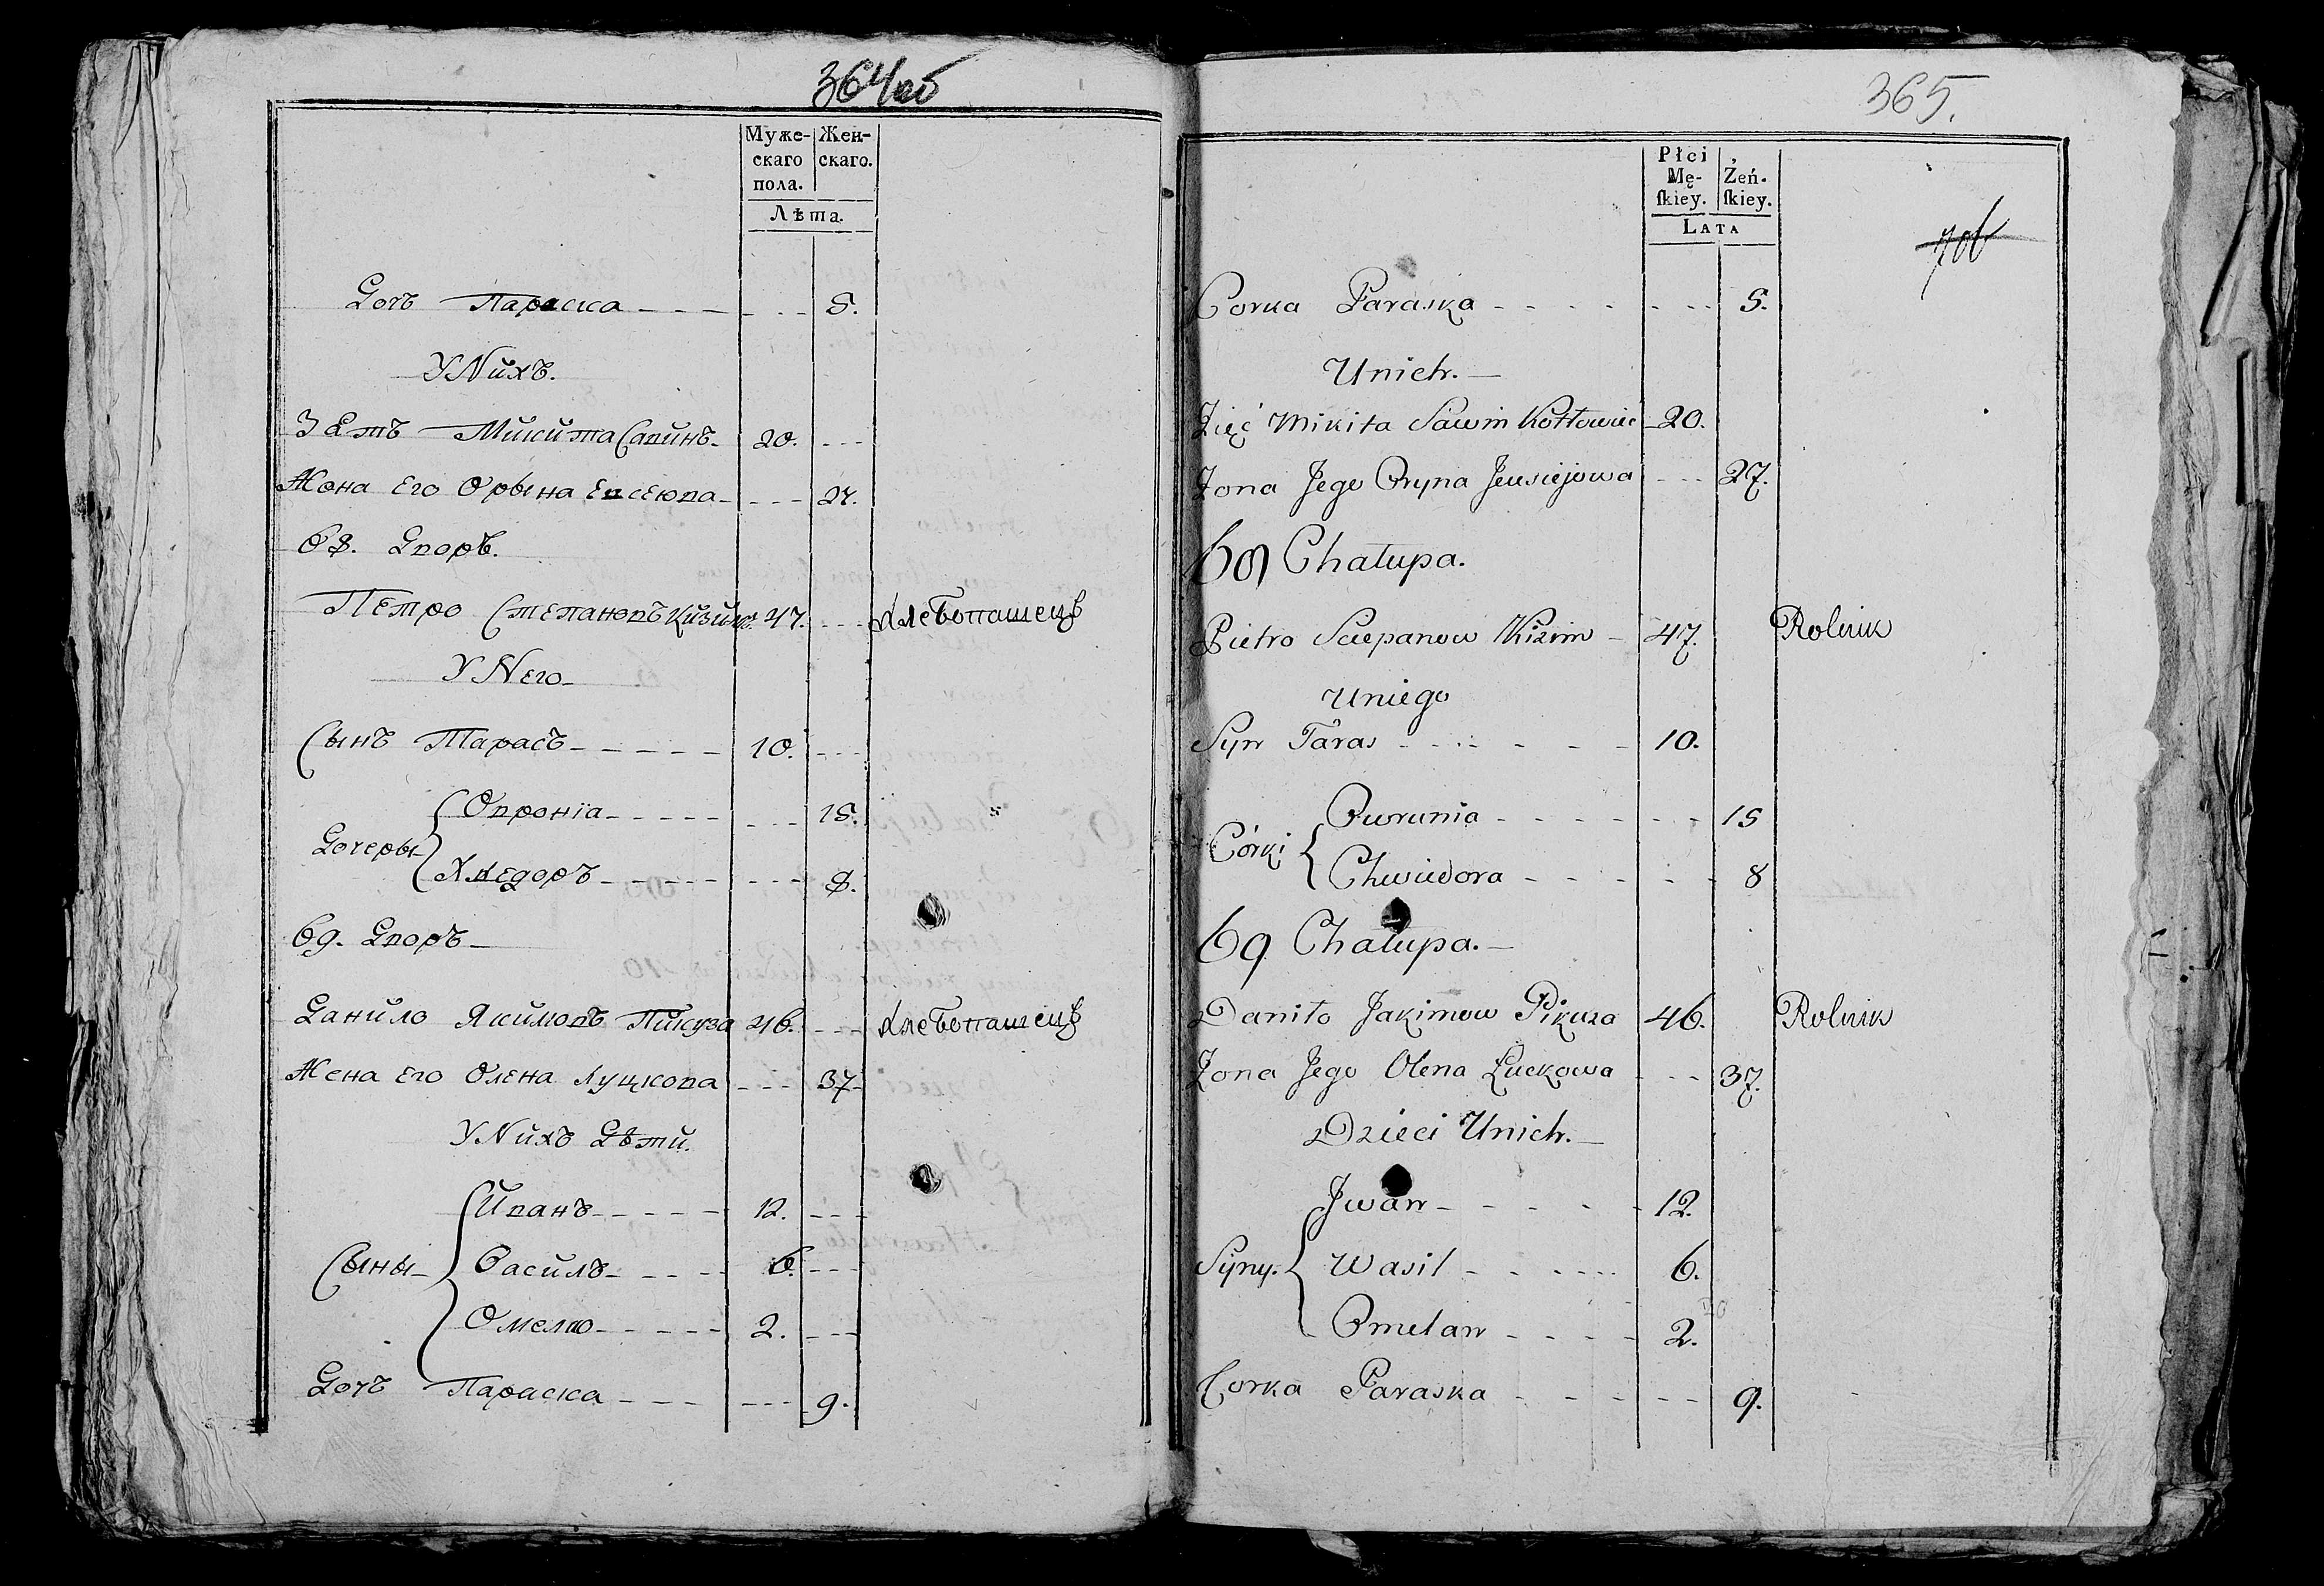 364об
Муже- Жен-
скаго скаго.
пола.
Лѣта.
Дочь Параска - - - - - - 5.
У Нихъ.
Зять Микита Савинъ - 20. - - -
Жона Его Орына Евсеюва - - - - 27.
68. Дворъ.
Пётро Степановъ Кизимъ 47. - - - хлебопашецъ
У Него -
Сынъ Тарасъ - - - - - 10. - - -
Овроніа - - - - - - - - 15.
Дочеры
Хведоръ - - - - - - - - 8.
69. Дворъ -
Данило Якимовъ Пикуза 46. - - - хлебопашецъ
Жена Его Олена Луцкова - - - 37.
У Нихъ Дѣти.
Иванъ - - - - - 12. - - -
Сыны - Василъ - - - - - 6. - - -
Омелю - - - - - 2. - - -
Дочъ Параска - - - - - - 9.
365.
Płci
Mę- Żeń-
skiey. skiey.
LATA
706
Corka Paraska - - - - - - - 5.
Unich. -
Zięć Mikita Sawin Kotłowiec - 20.
Żona Jego Oryna Jewsiejowa - - - 27.
68 Chałupa.
Pietro Sciepanow Kizim - 47. Rolnik
Uniego
Syn Taras - - - - - - 10.
Owrunia - - - - - - - 15
Córki
Chwiedora - - - - - - 8
69 Chałupa. -
Daniło Jakimow Pikuza 46. Rolnik
Żona Jego Olena Łuckowa - - - 37.
Dzieci Unich. -
Jwan - - - - - 12.
Syny. Wasil - - - - - - 6.
Omelan - - - - 2.
Corka Paraska - - - - - - 9.